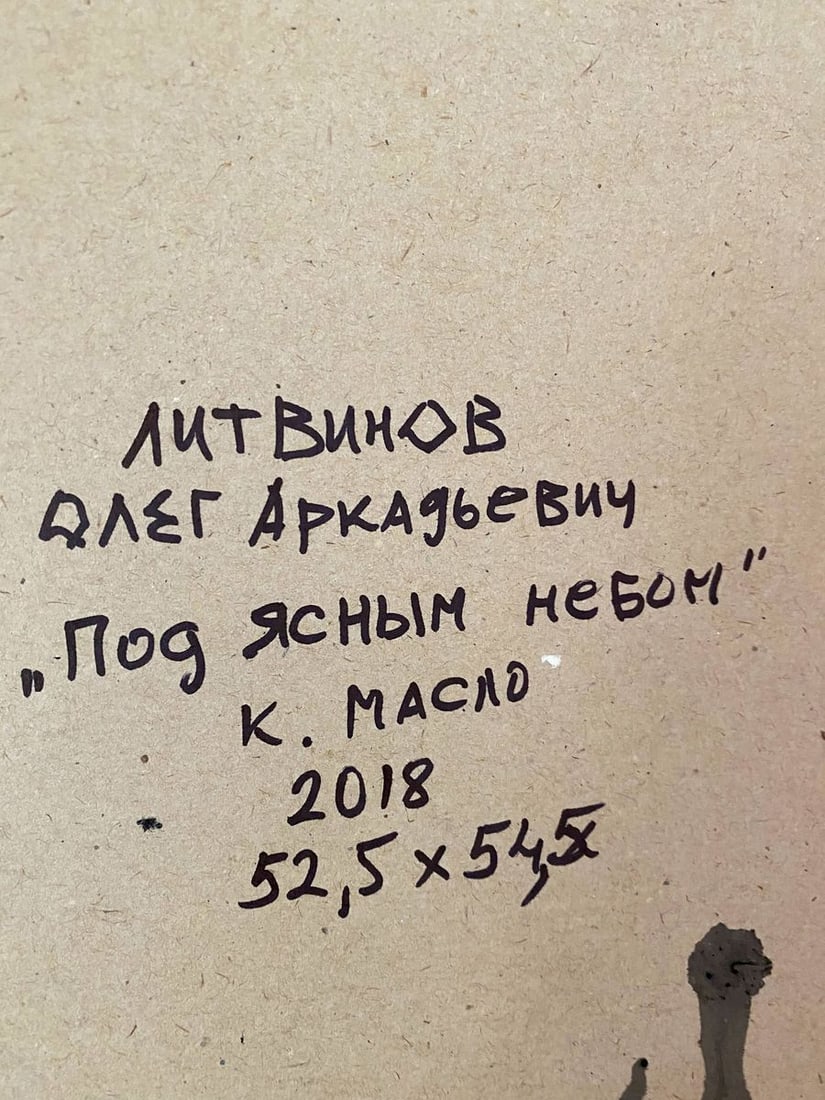 ЛИТВИНОВ
ОЛЕГ АРКАДЬЕВИЧ
„Под ясным небом"
К. МАСЛО
2018
52,5 x 54,5